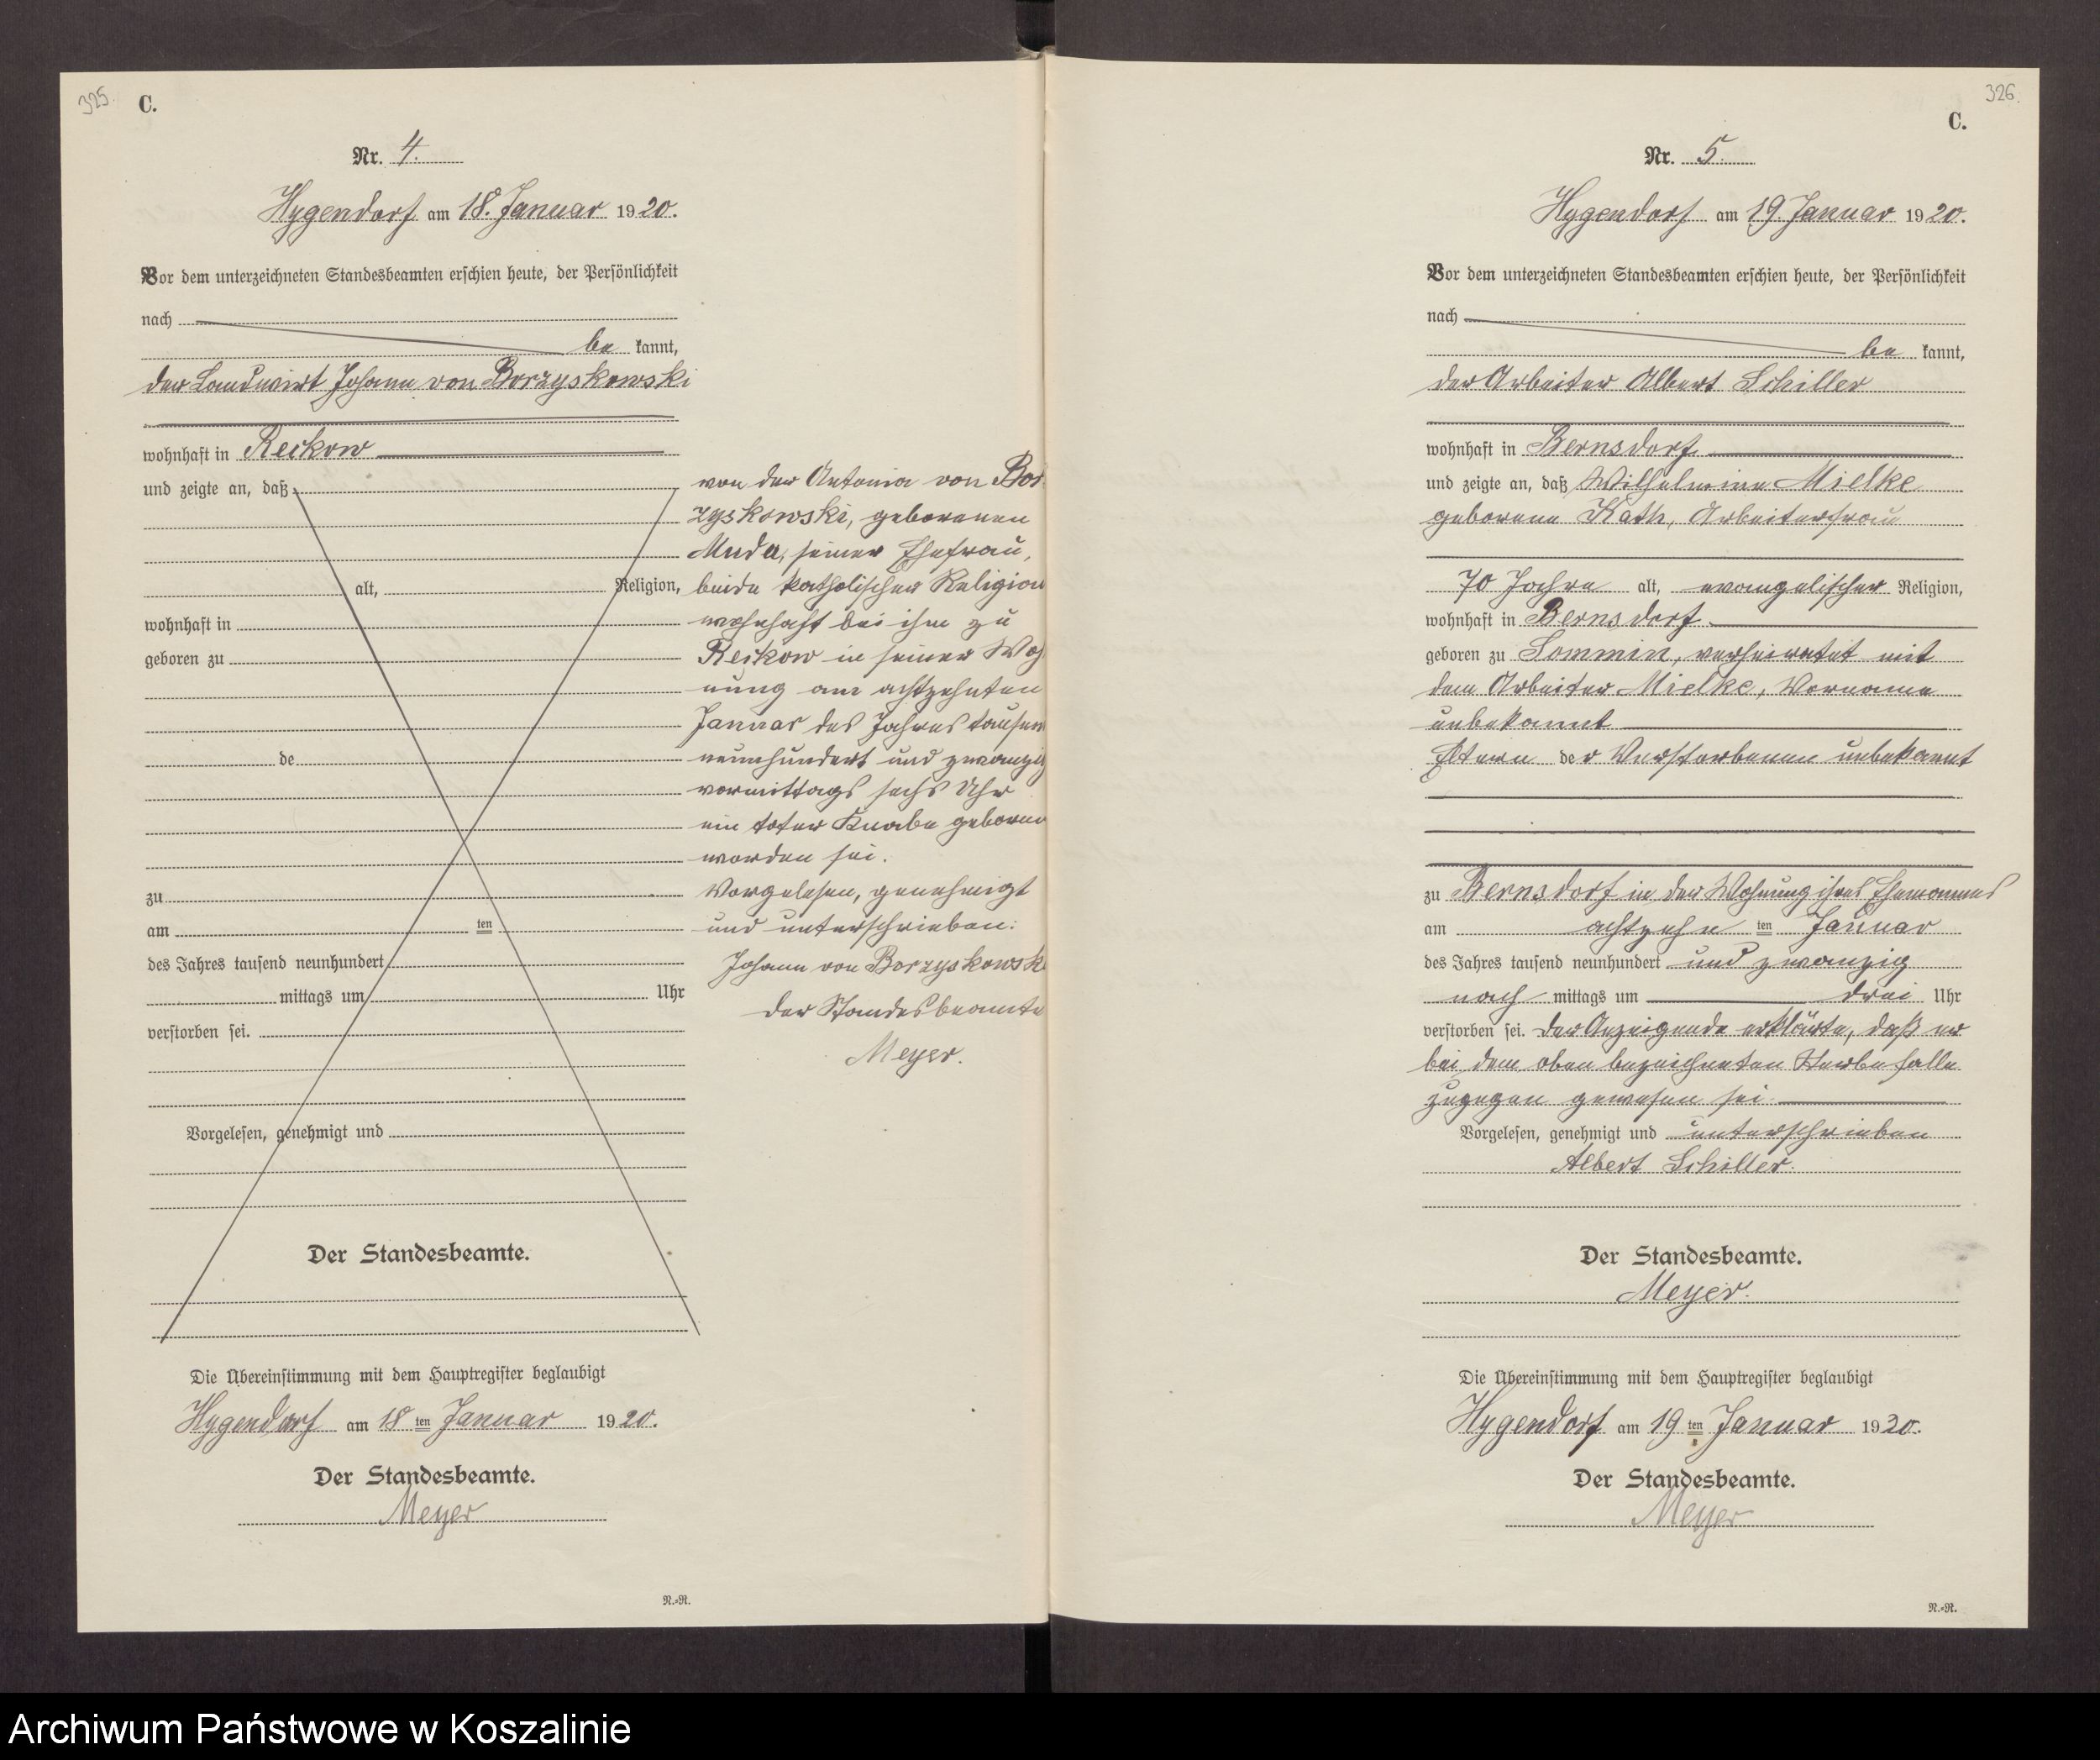 325.
C.
Nr. 4.
Hygendorf am 18. Januar 1920.
Vor dem unterzeichneten Standesbeamten erschien heute, der Persönlichkeit
nach
be kannt,
der Landwirt Johann von Borzyskowski
wohnhaft in Reckow
und zeigte an, daß
alt, Religion,
wohnhaft in
geboren zu
de
zu
am ten
des Jahres tausend neunhundert
mittags um Uhr
verstorben sei.
Vorgelesen, genehmigt und
Der Standesbeamte.
von der Antonia von Bor
zyskowski, geborenen
Muda, seiner Ehefrau,
beide katholischer Religion
wohnhaft bei ihm zu
Reckow in seiner Woh
nung am achtzehnten
Januar des Jahres tausen
neunhundert und zwanzig
vormittags sechs Uhr
ein toter Knabe geboren
worden sei.
Vorgelesen, genehmigt
und unterschrieben:
Johann von Borzyskowsk
Der Standesbeamte
Meyer.
Die Übereinstimmung mit dem Hauptregister beglaubigt
Hygendorf am 18 ten Januar 1920.
Der Standesbeamte.
Meyer
N.=R.
326.
C.
Nr. 5.
Hygendorf am 19 Januar 1920.
Vor dem unterzeichneten Standesbeamten erschien heute, der Persönlichkeit
nach
be kannt,
der Arbeiter Albert Schiller
wohnhaft in Bernsdorf
und zeigte an, daß Wilhelmine Mielke
geborene Kath, Arbeiterfrau
70 Jahre alt, evangelischer Religion,
wohnhaft in Bernsdorf
geboren zu Sommin, verheiratet mit
dem Arbeiter Mielke, Vorname
unbekannt
Eltern der Verstorbenen unbekannt
zu Bernsdorf in der Wohnung ihres Ehemannes
am achtzehn ten Januar
des Jahres tausend neunhundert und zwanzig
nach mittags um drei Uhr
verstorben sei. Der Anzeigende erklärte, daß er
bei dem oben bezeichneten Sterbefalle
zugegen gewesen sei.
Vorgelesen, genehmigt und unterschrieben
Albert Schiller.
Der Standesbeamte.
Meyer.
Die Übereinstimmung mit dem Hauptregister beglaubigt
Hygendorf am 19 ten Januar 1920.
Der Standesbeamte.
Meyer
N.=R.
Archiwum Państwowe w Koszalinie